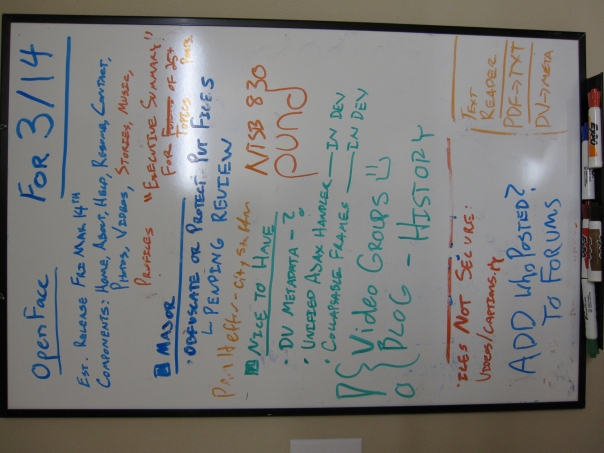 OPENFACE FOR 3/14
EST. RELEASE FRI MAR 14TH
COMPONENTS: HOME, ABOUT, HELP, RESUME, CONTACT,
PHOTOS, VIDEOS, STORIES, MUSIC,
PROFILES "EXECUTIVE SUMMARY"
FOR OF 25+
TOPICS POSTS.
MAJOR
• OBFUSCATE OR PROTECT PUT FILES
PENDING REVIEW
NISB 830
pund
NICE TO HAVE
• DV METADATA - ?
• UNIFIED AJAX HANDLER — IN DEV
• COLLAPSABLE FRAMES — IN DEV
Video GROUPS
BLOG - HISTORY
NOT SECURE:
VIDEOS/CAPTIONS
ADD WHO POSTED?
TO FORUMS
TEXT
READER
PDF→TXT
DV→META